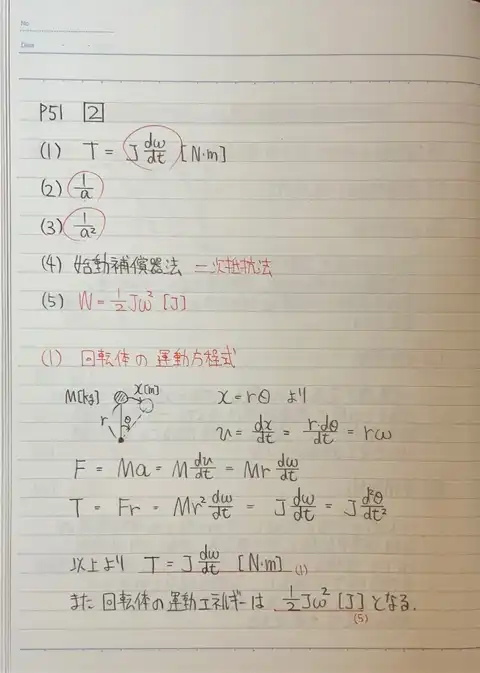 No.
Date
P51 2
(1) T = J dω/dt [N·m]
(2) 1/a
(3) 1/a²
(4) 始動補償器法 二次抵抗法
(5) W = 1/2 Jω² [J]
(1) 回転体の運動方程式
M[kg] x[m]
r θ
x = rθ より
v = dx/dt = r·dθ/dt = rω
F = Ma = M dv/dt = Mr dω/dt
T = Fr = Mr² dω/dt = J dω/dt = J d²θ/dt²
以上より T = J dω/dt [N·m] (1)
また 回転体の運動エネルギーは 1/2 Jω² [J] となる.
(5)